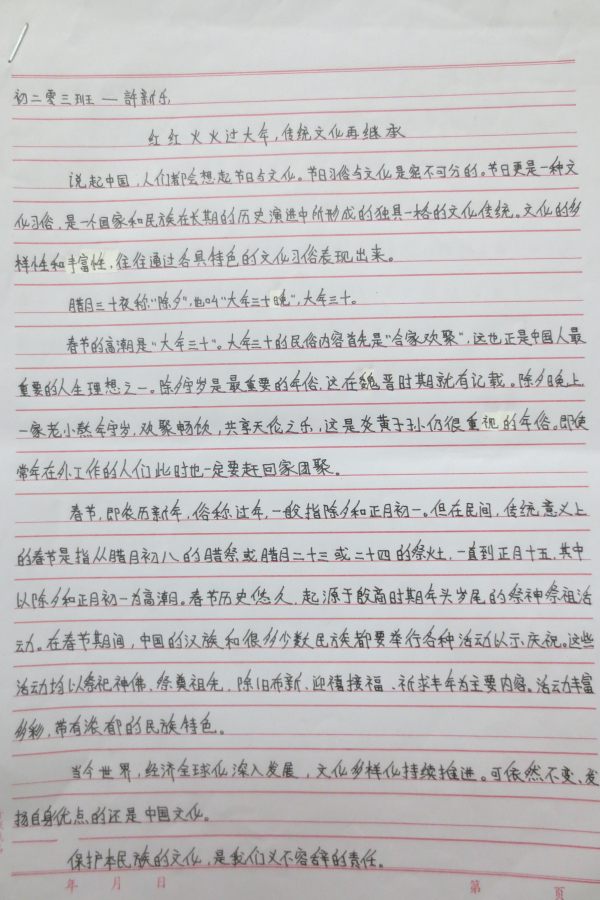 初二零三班 — 許新乐
红红火火过大年,传统文化再继承
说起中国,人们都会想起节日与文化。节日习俗与文化是密不可分的。节日更是一种文
化习俗,是一个国家和民族在长期的历史演进中所形成的独具一格的文化传统。文化的多
样性和丰富性,往往通过各具特色的文化习俗表现出来。
腊月三十夜称“除夕”,也叫“大年三十晚”,大年三十。
春节的高潮是“大年三十”。大年三十的民俗内容首先是“合家欢聚”,这也正是中国人最
重要的人生理想之一。除夕守岁是最重要的年俗,这在魏晋时期就有记载。除夕晚上
一家老小熬年守岁,欢聚畅饮,共享天伦之乐,这是炎黄子孙仍很重视的年俗。即使
常年在外工作的人们此时也一定要赶回家团聚。
春节,即农历新年,俗称过年,一般指除夕和正月初一。但在民间,传统意义上
的春节是指从腊月初八的腊祭或腊月二十三或二十四的祭灶,一直到正月十五,其中
以除夕和正月初一为高潮。春节历史悠久,起源于殷商时期年头岁尾的祭神祭祖活
动。在春节期间,中国的汉族和很多少数民族都要举行各种活动以示庆祝。这些
活动均以祭祀神佛、祭奠祖先、除旧布新、迎禧接福、祈求丰年为主要内容。活动丰富
多彩,带有浓郁的民族特色。
当今世界,经济全球化深入发展,文化多样化持续推进。可依然不变、发
扬自身优点的还是中国文化。
保护本民族的文化,是我们义不容辞的责任。
年 月 日 第 页